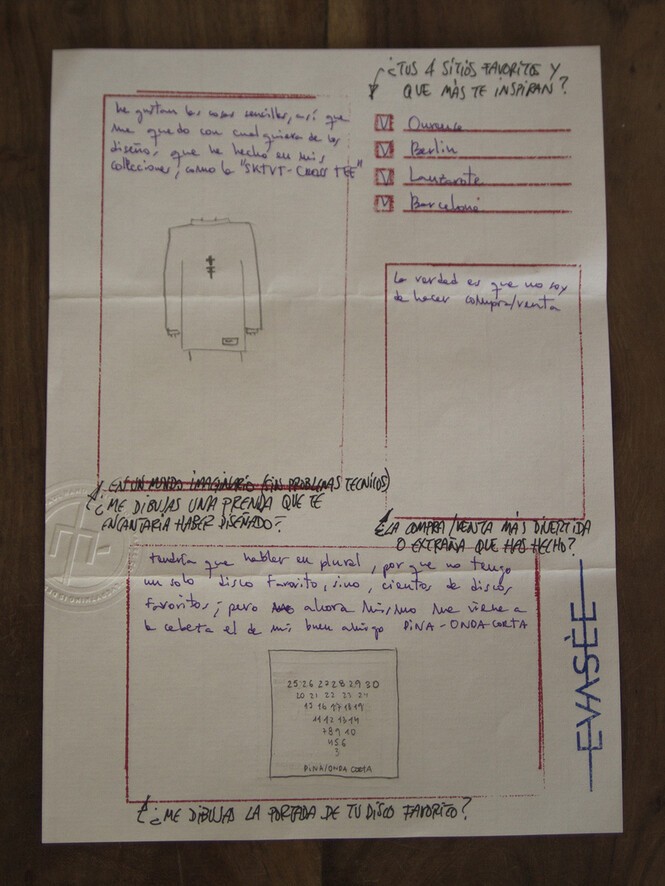 ¿TUS 4 SITIOS FAVORITOS Y
QUE MÁS TE INSPIRAN?
Ourense
Berlin
Lanzarote
Barcelona
Me gustan las cosas sencillas, así que
me quedo con cualquiera de los
diseños, que he hecho en mis
collecciones, como la "SKTVT-CROSS TEE"
La verdad es que no soy
de hacer compra/venta
EN UN MUNDO IMAGINARIO (SIN PROBLEMAS TECNICOS)
¿ME DIBUJAS UNA PRENDA QUE TE
ENCANTARIA HABER DISEÑADO?
¿LA COMPRA/VENTA MÁS DIVERTIDA
O EXTRAÑA QUE HAS HECHO?
tendría que hablar en plural, por que no tengo
un solo disco favorito, sino, cientos de discos
favoritos, pero ahora mismo me viene a
la cabeta el de mi buen amigo DINA-ONDA CORTA
25 26 27 28 29 30
20 21 22 23 24
15 16 17 18 19
11 12 13 14
7 8 9 10
4 5 6
3
DINA/ONDA CORTA
¿ME DIBUJAS LA PORTADA DE TU DISCO FAVORITO?
EVASÈE